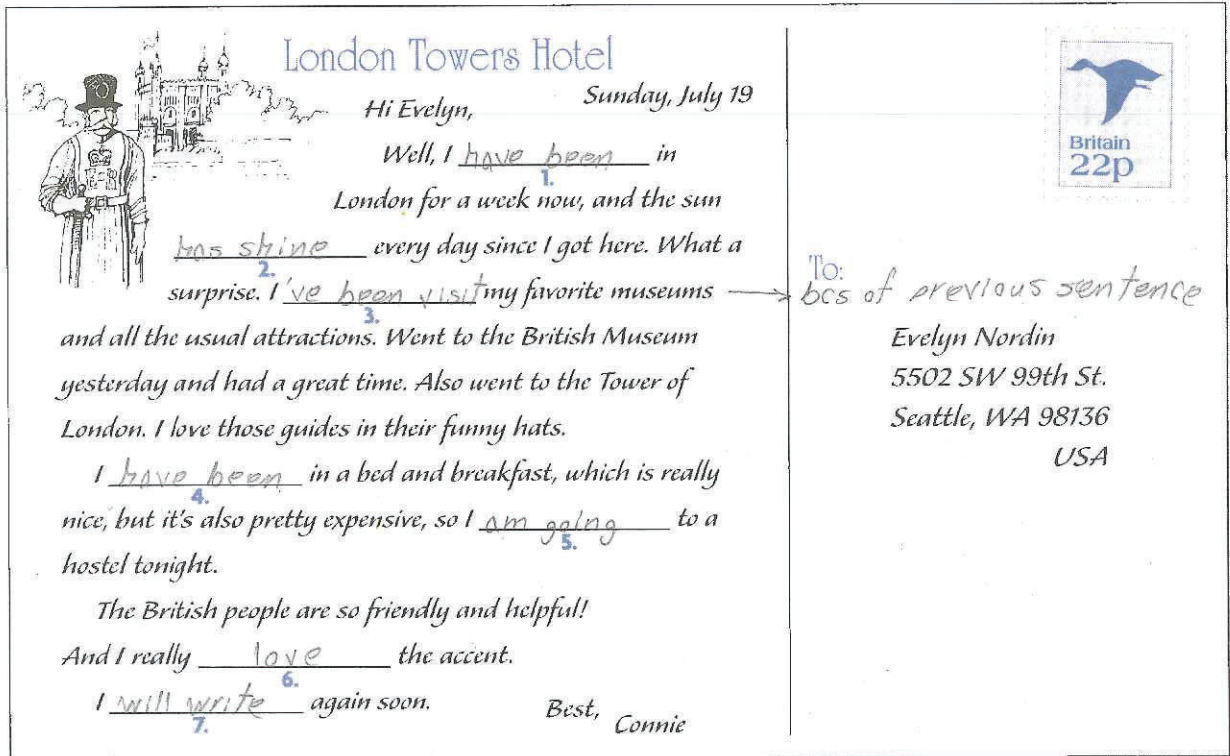 London Towers Hotel
Sunday, July 19
Hi Evelyn,
Well, I have been in
1.
London for a week now, and the sun
has shine every day since I got here. What a
2.
surprise. I 've been visit my favorite museums
3.
and all the usual attractions. Went to the British Museum
yesterday and had a great time. Also went to the Tower of
London. I love those guides in their funny hats.
I have been in a bed and breakfast, which is really
4.
nice, but it's also pretty expensive, so I am going to a
5.
hostel tonight.
The British people are so friendly and helpful!
And I really love the accent.
6.
I will write again soon.
7.
Best,
Connie
Britain
22p
To:
bcs of previous sentence
Evelyn Nordin
5502 SW 99th St.
Seattle, WA 98136
USA